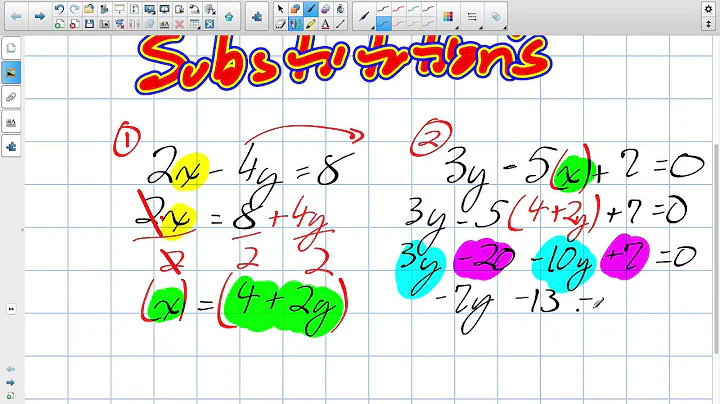 Substitutions
① 2x - 4y = 8
2x = 8 + 4y
2 2 2
(x) = (4 + 2y)
② 3y - 5(x) + 7 = 0
3y - 5(4 + 2y) + 7 = 0
3y - 20 - 10y + 7 = 0
- 7y - 13 =